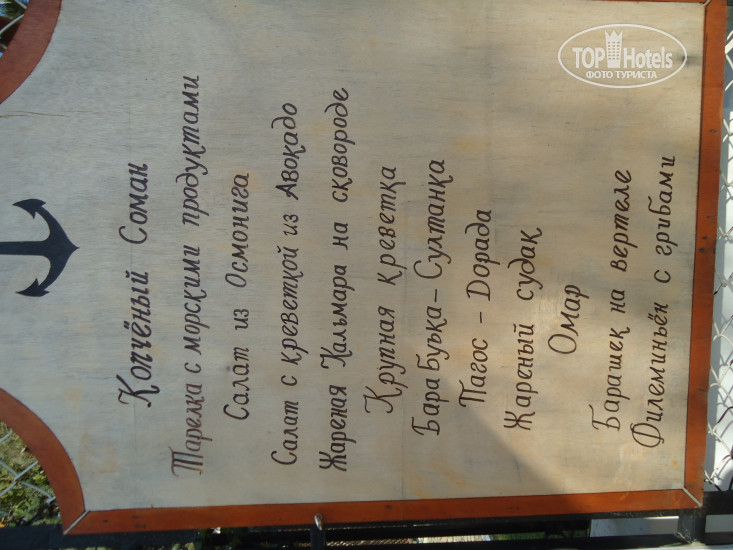 Копчёный Соман
Тарелка с морскими продуктами
Салат из Осмонига
Салат с креветкой из Авокадо
Жареная Кальмара на сковороде
Крупная креветка
Бара буъка - Султанка
Пагос - Дорада
Жареный судак
Омар
Барашек на вертеле
Филеминьён с грибами
TOP Hotels
ФОТО ТУРИСТА